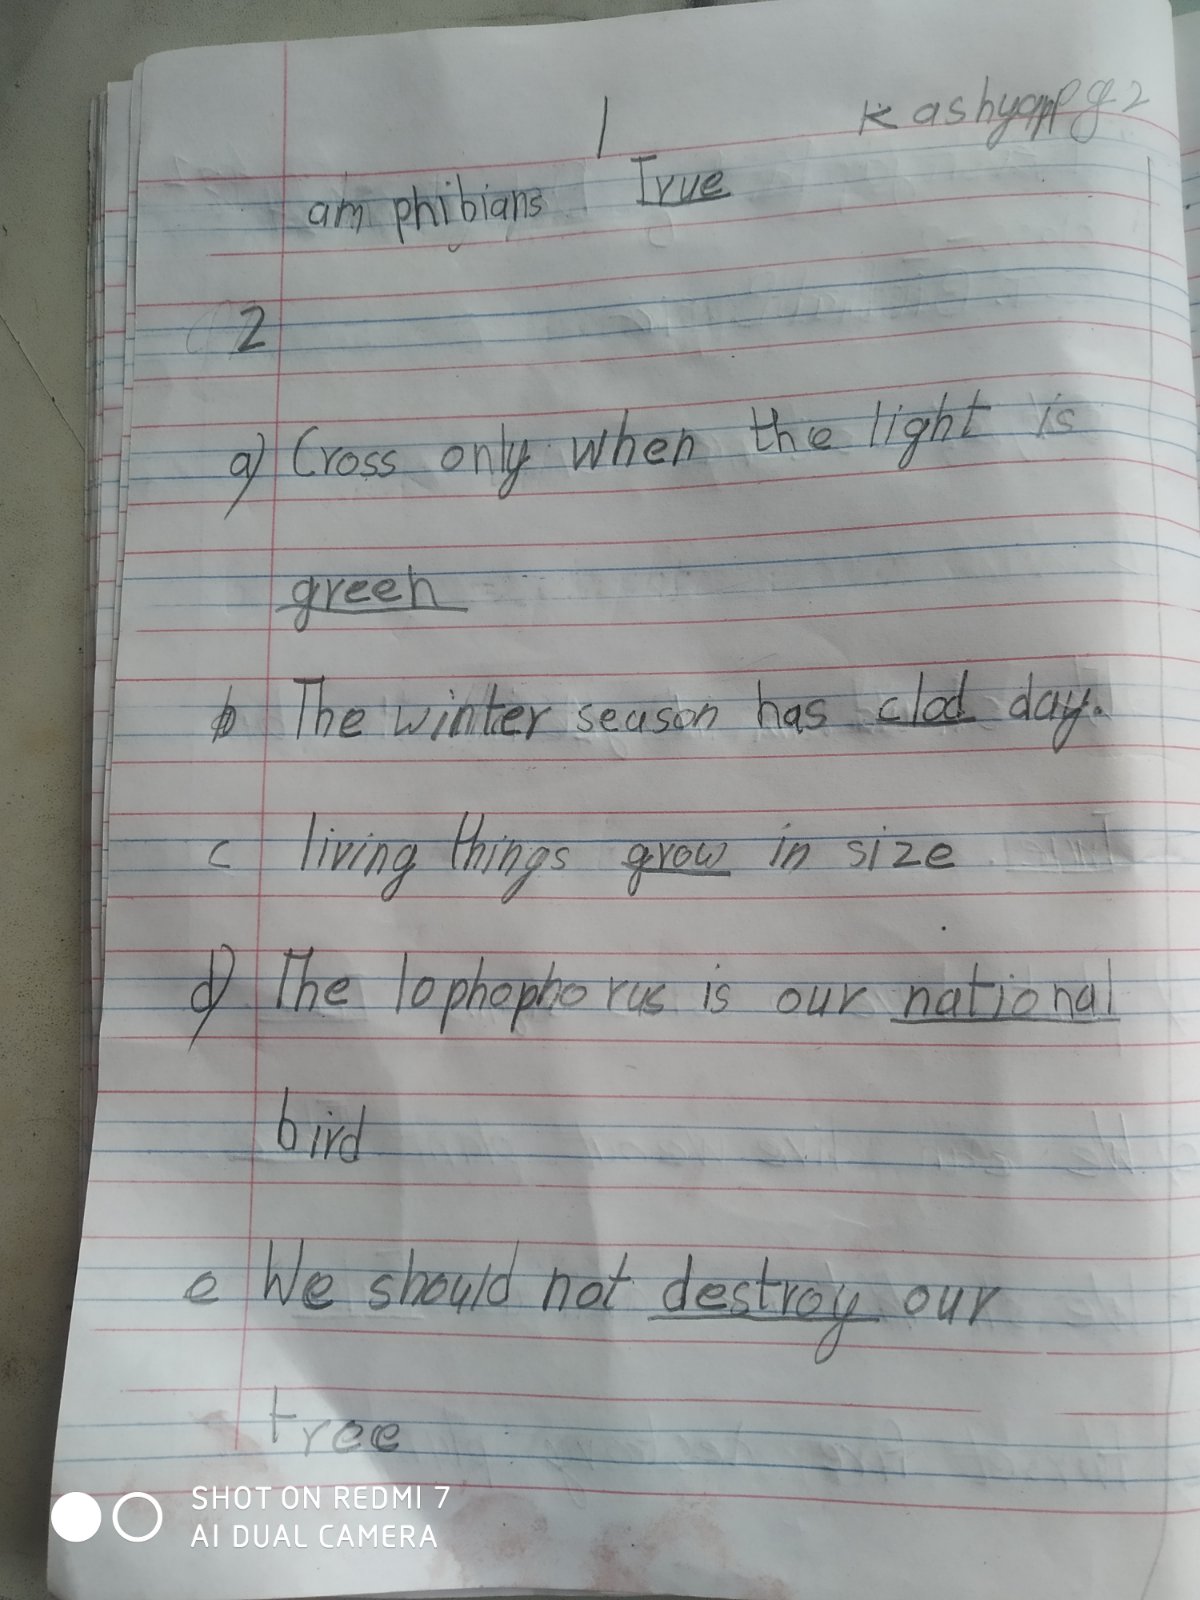 1 Kashyap pg 2
amphibians True
2
a) Cross only when the light is
green
b The winter season has clod day.
c living things grow in size
d) The lophophorus is our national
bird
e We should not destroy our
tree
SHOT ON REDMI 7
AI DUAL CAMERA